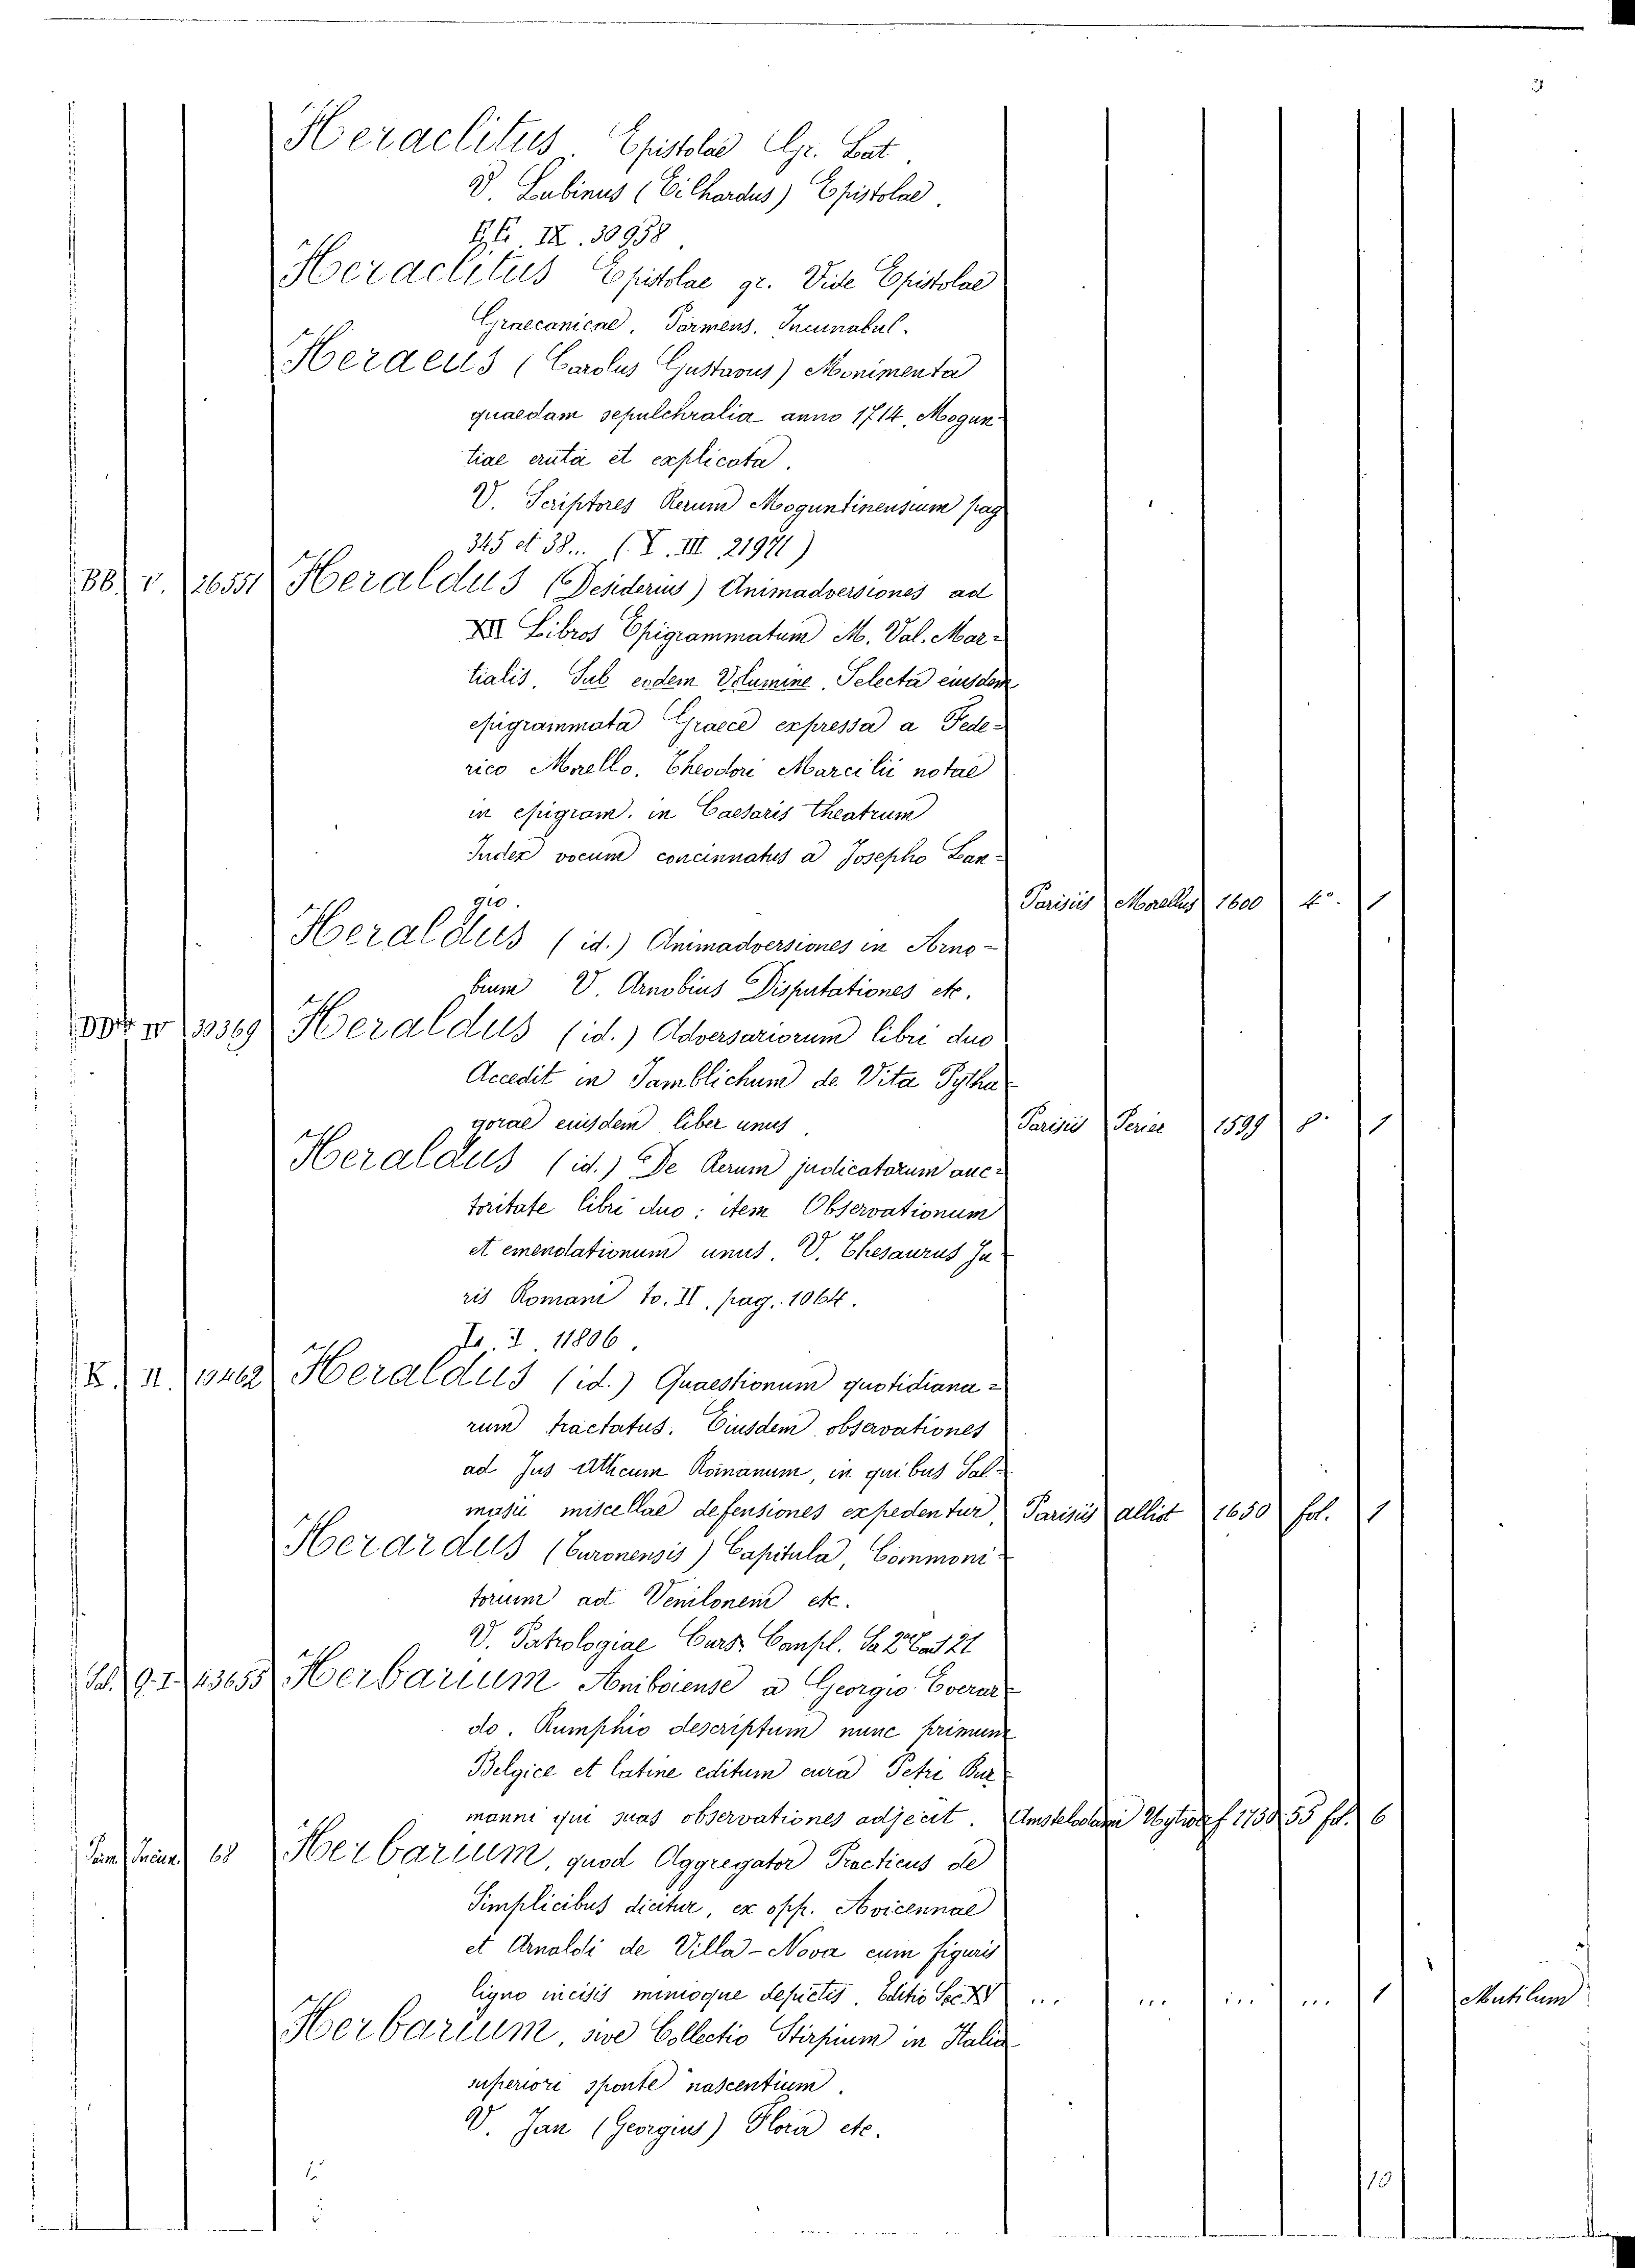 Heraclitus. Epistolae Gr. Lat.
V. Lubinus (Eilhardus) Epistolae.
IX. 30958
Heraclitus Epistolae gr. Vide Epistolae
Graecanicae. Parmens. Incunabul.
Heraeus (Carolus Gustavus) Monimenta
quaedam sepulchralia anno 1714, Mogun-
tiae eruta et explicata.
V. Scriptores Rerum Moguntinensium pag
345 et 38... (X. III 21971)
BB. V. 26551 Heraldus (Desiderius) Animadversiones ad
XII Libros Epigrammatum M. Val. Mar-
tialis. Sub eodem Volumine. Selecta eiusdem
epigrammata Graece expressa a Fede-
rico Morello. Theodori Marcilii notae
in epigram. in Caesaris theatrum
Index vocum concinnatus a Josepho Lan-
gio. Parisiis Morellus 1600 4.° 1
Heraldus (id.) Animadversiones in Arno-
bium V. Arnobius Disputationes etc.
IV 30369 Heraldus (id.) Adversariorum libri duo
Accedit in Jamblichum de Vita Pytha-
gorae eiusdem liber unus. Parisiis Perier 1599 8. 1
Heraldus (id.) De Rerum judicatarum auc-
toritate libri duo: item Observationum
et emendationum unus. V. Thesaurus Ju-
ris Romani to. II, pag. 1064.
I. 11806.
K. II. 19462 Heraldus (id.) Quaestionum quotidiana-
rum tractatus. Eiusdem observationes
ad Jus Atticum Romanum, in quibus Sal-
masii miscellae defensiones expedentur, Parisiis alliot 1650 fol. 1
Herardus (Turonensis) Capitula, Commoni-
torium ad Venilonem etc.
V. Patrologiae Curs. Compl. 121
9. I. 43655 Herbarium Amboiense a Georgio Everar-
do. Rumphio descriptum nunc primum
Belgice et latine editum cura Petri Bur-
manni qui suas observationes adjecit. Amstelodami Uytwerf 1750.55 fol. 6
Parm. Incun. 68 Herbarium, quod Aggregator Practicus de
Simplicibus dicitur, ex opp. Avicennae
et Arnaldi de Villa-Nova cum figuris
ligno incisis minioque depictis. Editio Sec. XV ... ... ... ... 1 Mutilum
Herbarium, sive Collectio Stirpium in Italia
superiori sponte nascentium.
V. Jan (Georgius) Flora etc.
10